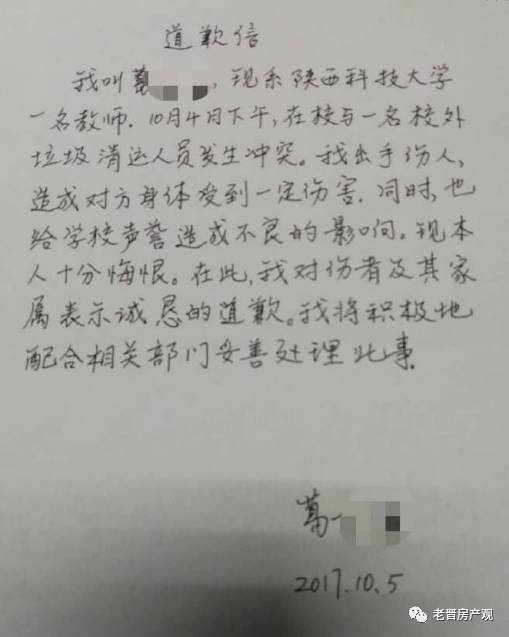 道歉信
我叫葛，现系陕西科技大学
一名教师．10月4日下午，在校与一名校外
垃圾清运人员发生冲突。我出手伤人，
造成对方身体受到一定伤害．同时，也
给学校声誉造成不良的影响。现本
人十分悔恨。在此，我对伤者及其家
属表示诚恳的道歉。我将积极地
配合相关部门妥善处理此事．
葛
2017.10.5
老晋房产观